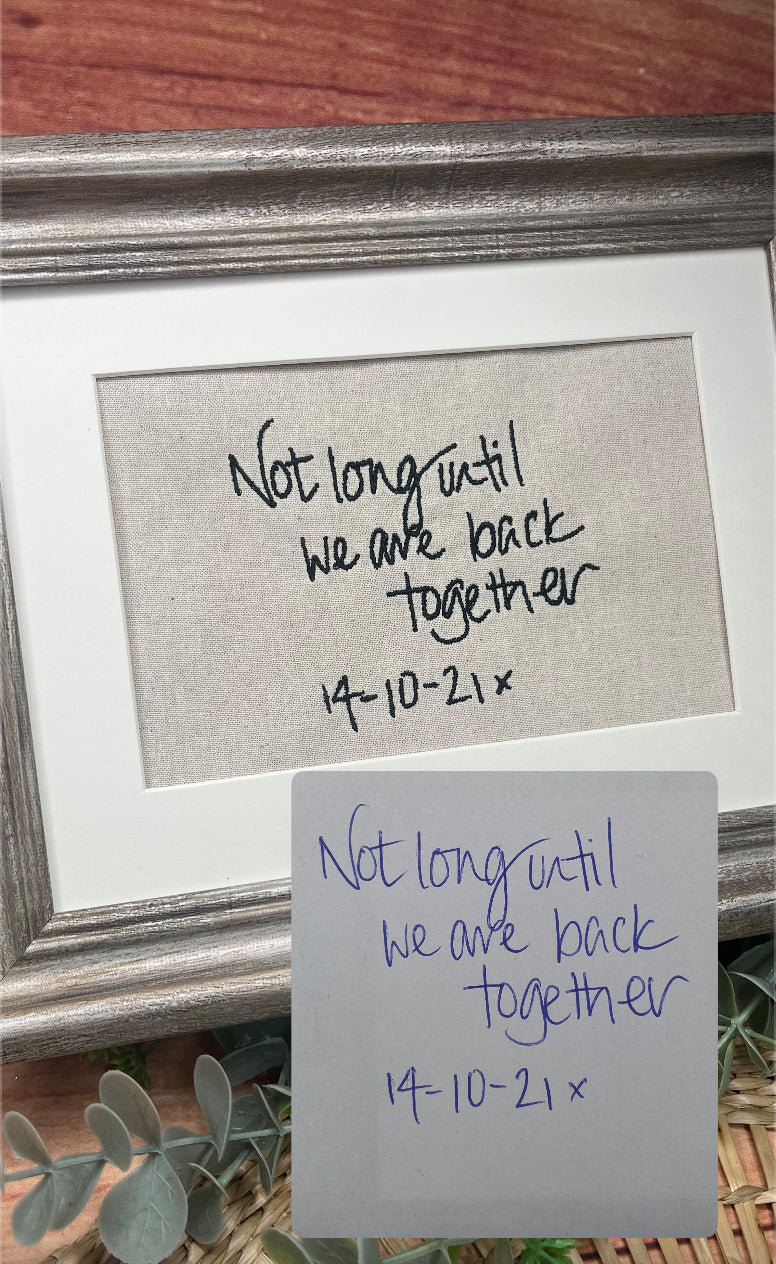 Not long until
we are back
together
14-10-21 x
Not long until
we are back
together
14-10-21 x